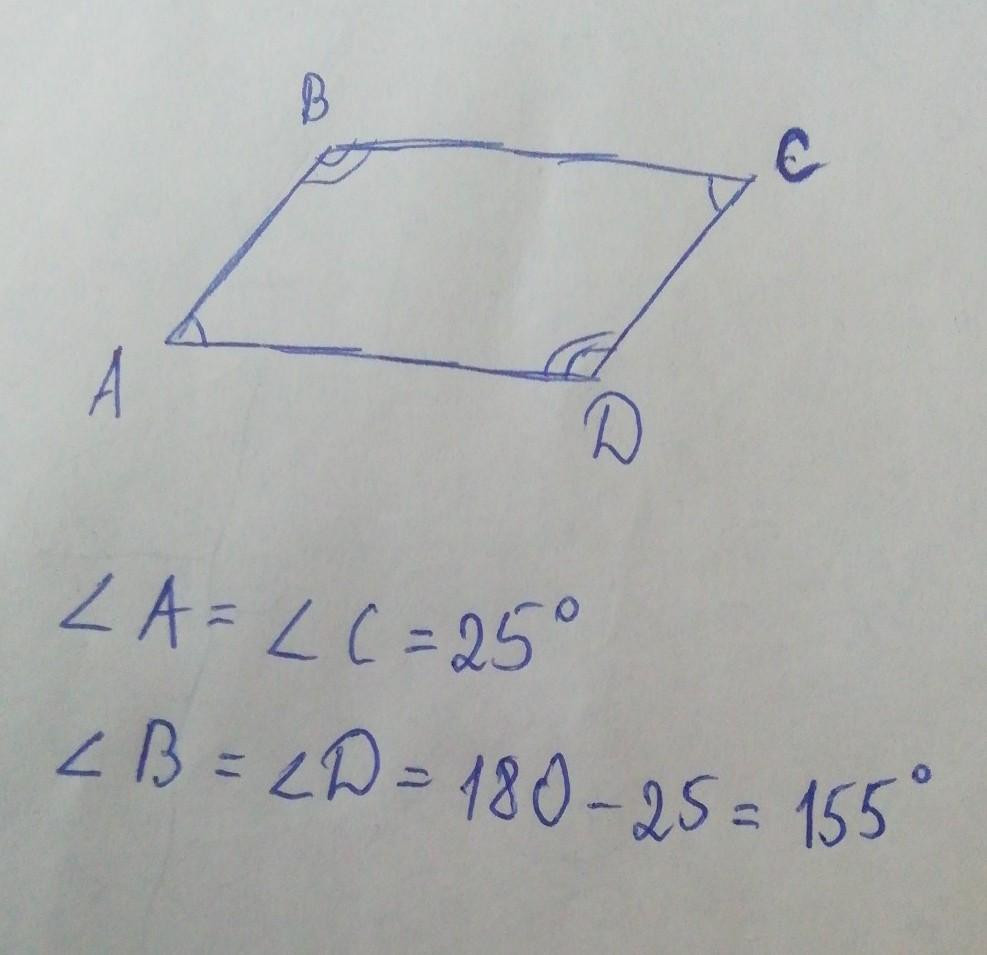 B
C
A
D
∠A = ∠C = 25°
∠B = ∠D = 180 - 25 = 155°